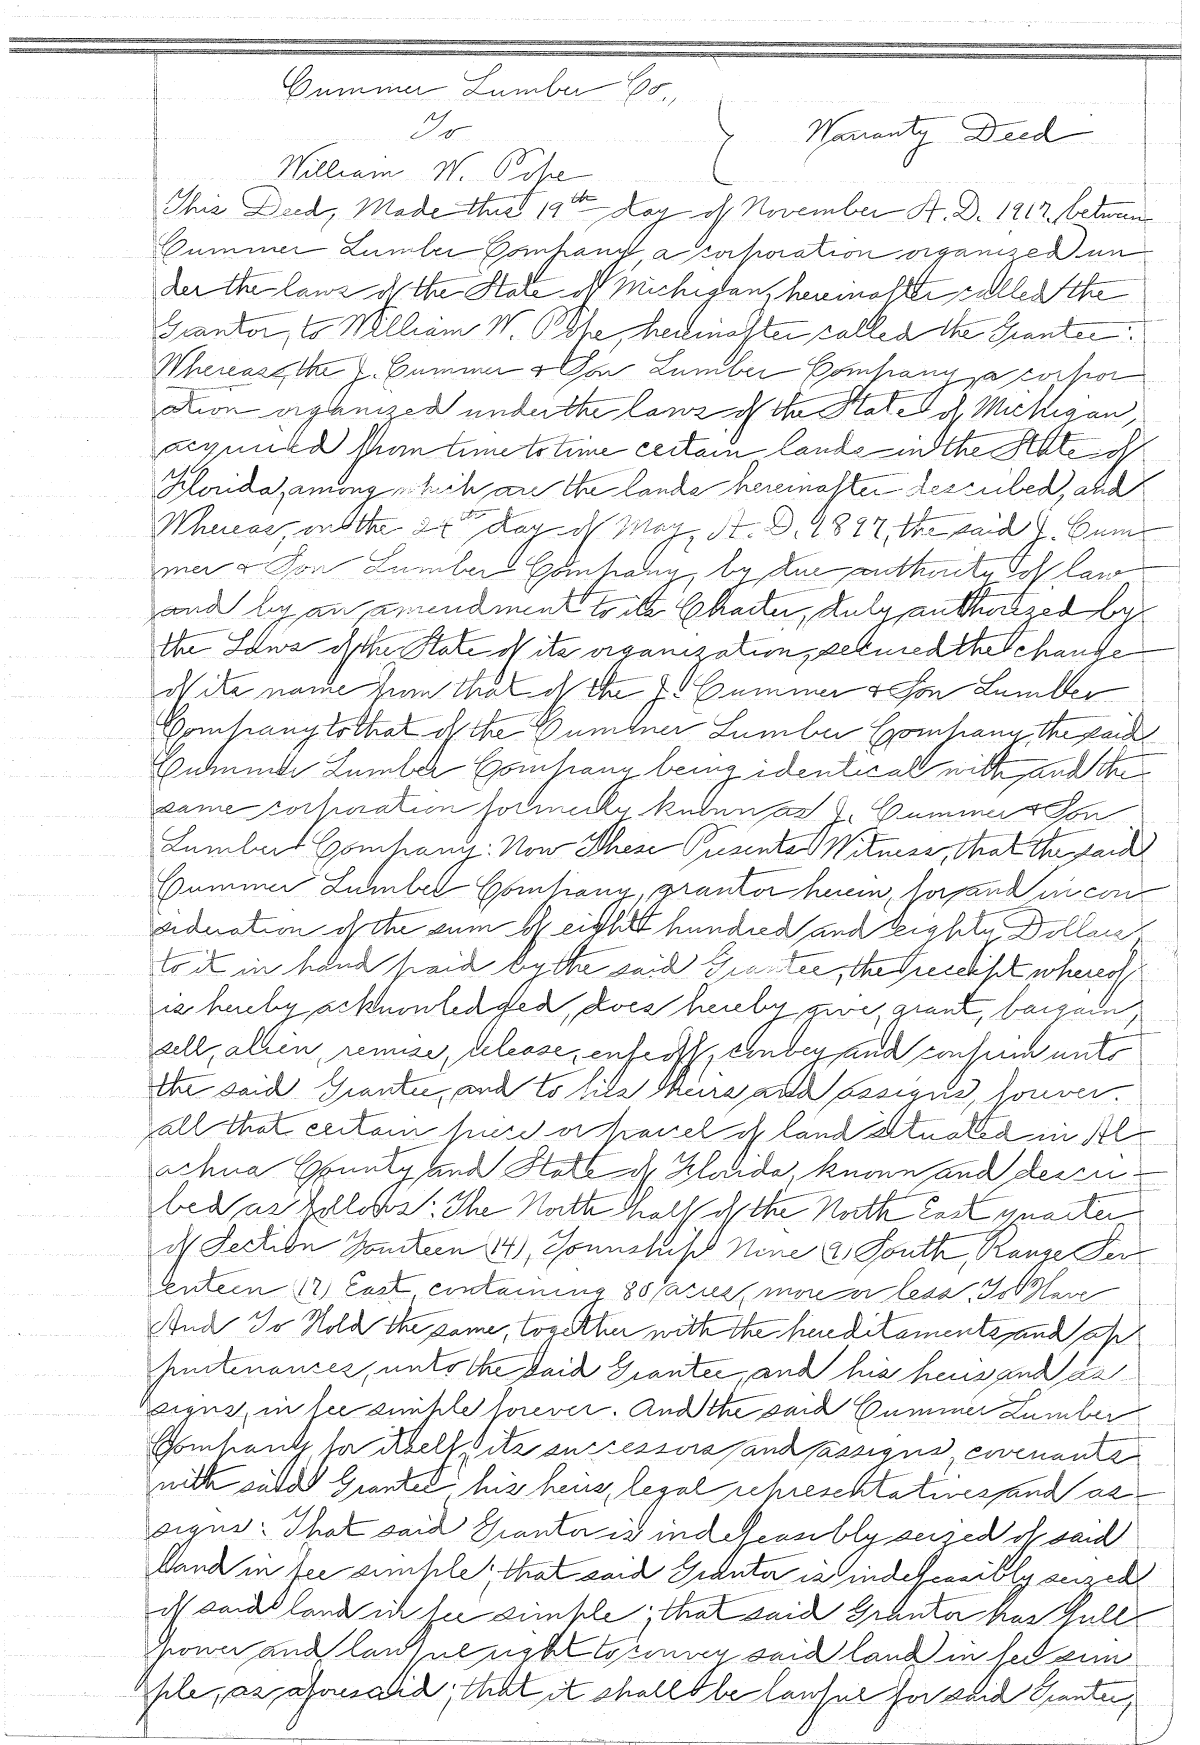 Cummer Lumber Co.,
To
Warranty Deed
William W. Pope
This Deed, Made this 19th day of November A.D. 1917, between
Cummer Lumber Company, a corporation organized un
der the laws of the State of Michigan, hereinafter called the
Grantor, to William W. Pope, hereinafter called the Grantee:
Whereas, the J. Cummer & Son Lumber Company, a corpor
ation organized under the laws of the State of Michigan,
acquired from time to time certain lands in the State of
Florida, among which are the lands hereinafter described, and
Whereas, on the day of May, A. D. 1897, the said J. Cum
mer & Son Lumber Company, by due authority of law
and by an amendment to its Charter, duly authorized by
the Laws of the State of its organization, secured the change
of its name from that of the J. Cummer & Son Lumber
Company to that of the Cummer Lumber Company, the said
Cummer Lumber Company being identical with and the
same corporation formerly known as J. Cummer & Son
Lumber Company: Now These Presents Witness, that the said
Cummer Lumber Company, grantor herein, for and in con
sideration of the sum of eight hundred and eighty Dollars
to it in hand paid by the said Grantee, the receipt whereof
is hereby acknowledged, does hereby give, grant, bargain,
sell, alien, remise, release, enfeoff, convey and confirm unto
the said Grantee, and to his heirs and assigns, forever.
all that certain piece or parcel of land situated in Al
achua County and State of Florida, known and descri-
bed as follows: The North half of the North East quarter
of Section Fourteen (14), Township Nine (9) South, Range Sev
enteen (17) East, containing 80 acres, more or less. To Have
And To Hold the same, together with the hereditaments and ap
purtenances, unto the said Grantee, and his heirs and as
signs, in fee simple forever. And the said Cummer Lumber
Company for itself, its successors and assigns, covenants
with said Grantee, his heirs, legal representatives and as-
signs: That said Grantor is indefeasibly seized of said
land in fee simple; that said Grantor is indefeasibly seized
of said land in fee simple; that said Grantor has full
power and lawful right to convey said land in fee sim
ple, as aforesaid; that it shall be lawful for said Grantee,